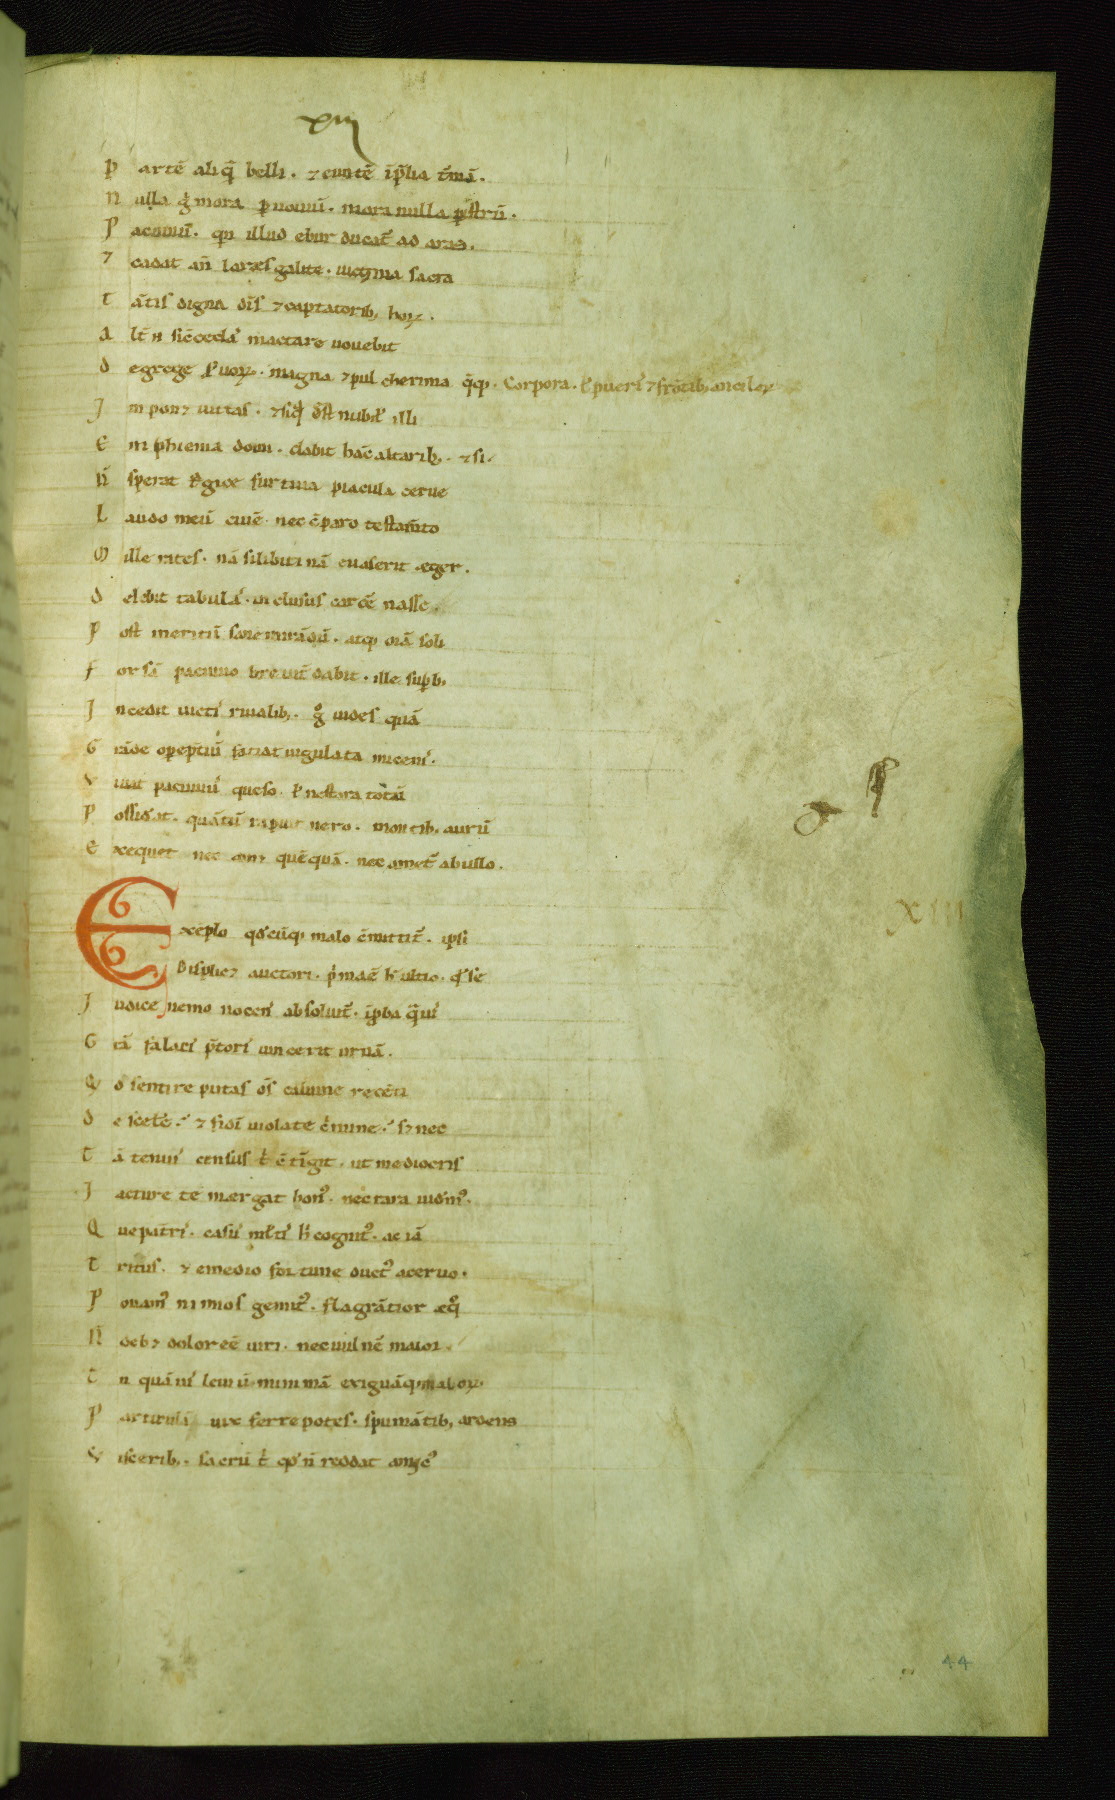 xiii
P artē aliq̄ belli · ⁊ euntē ī p̄lia t̄mā ·
N ulla g̊ mora p̱ nouiū · mora nulla p̱ istrū ·
P acuuiū · qn illud ebur ducat̄ ad aras ·
⁊ cadat an̄ lares galite · uictima sacra
T ātis digna dis̄ ⁊ captatorib; hoꝝ ·
A lt̄ n̄ si c̄cedaꝰ mactare uouebit
D e grege seruoꝝ · magna ⁊ pulcherima q̄q; · Corpora · ł puerıꝰ ⁊ frōtib; ancilaꝝ
I mponꝫ uittas · ⁊ siq̄ ē nubił illi
E iphigenia domi · dabit hāc altarib; · ⁊ si ·
N̄ sperat tragice furtiua piacula cerue
L audo meū ciuē · nec c̄paro testam̄to
M ille rates · nā si libitinā euaserit æger ·
D elebit tabulaꝰ · inclusus carcē nasse ·
P ost meritū sane mirādū · atq; oīā soli
F orsā pacuuio breuit̄ dabit · ille sup̱b;
I ncedit uictiꝰ riualib; · g̊ uides quā
G rāde opep̄tiū faciat iugulata miceniꝰ ·
V iuat pacuuiꝰ queso · ł nestora totū
P ossideat · quātū rapuit nero · montib; aurū
E xequet nec amꝫ quēquā · nec amet̄ ab ullo ·
E xēplo qd̄cūq; malo c̄mittit̄ · ipsi
Displicꝫ auctori · p̄ma ē h̄ ultio · qđ se
I udice nemo nocenꝰ absoluit̄ · īp̱ba q̄uiꝰ
G rā fallaciꝰ p̄toriꝰ uincerit urnā ·
Q d̄ sentire putas os̄ caluine recēti
D e scelē · ⁊ fidī uiolate c̄mine · sꝫ nec
T ā tenuiꝰ census t̄ c̄tīgit · ut mediocris
I acture te mergat honꝰ · nec rara uidemꝰ ·
Q ue patriꝰ · casuꝰ mltiꝰ h̄ cognitꝰ · ac iā
T ritus · ⁊ e medio fortune ductꝰ aceruo ·
P onamꝰ nimios gemitꝰ · flagrātior æq̊
N̄ debꝫ dolor eē uiri · nec uulnē maior ·
T u quāuiꝰ leuiū minimā exiguāq; maloꝝ ·
P articulā uix ferre potes · spumātib; ardens
V iscerib; · sacrū t̄ qđ n̄ reddat amicꝰ
XIII
44